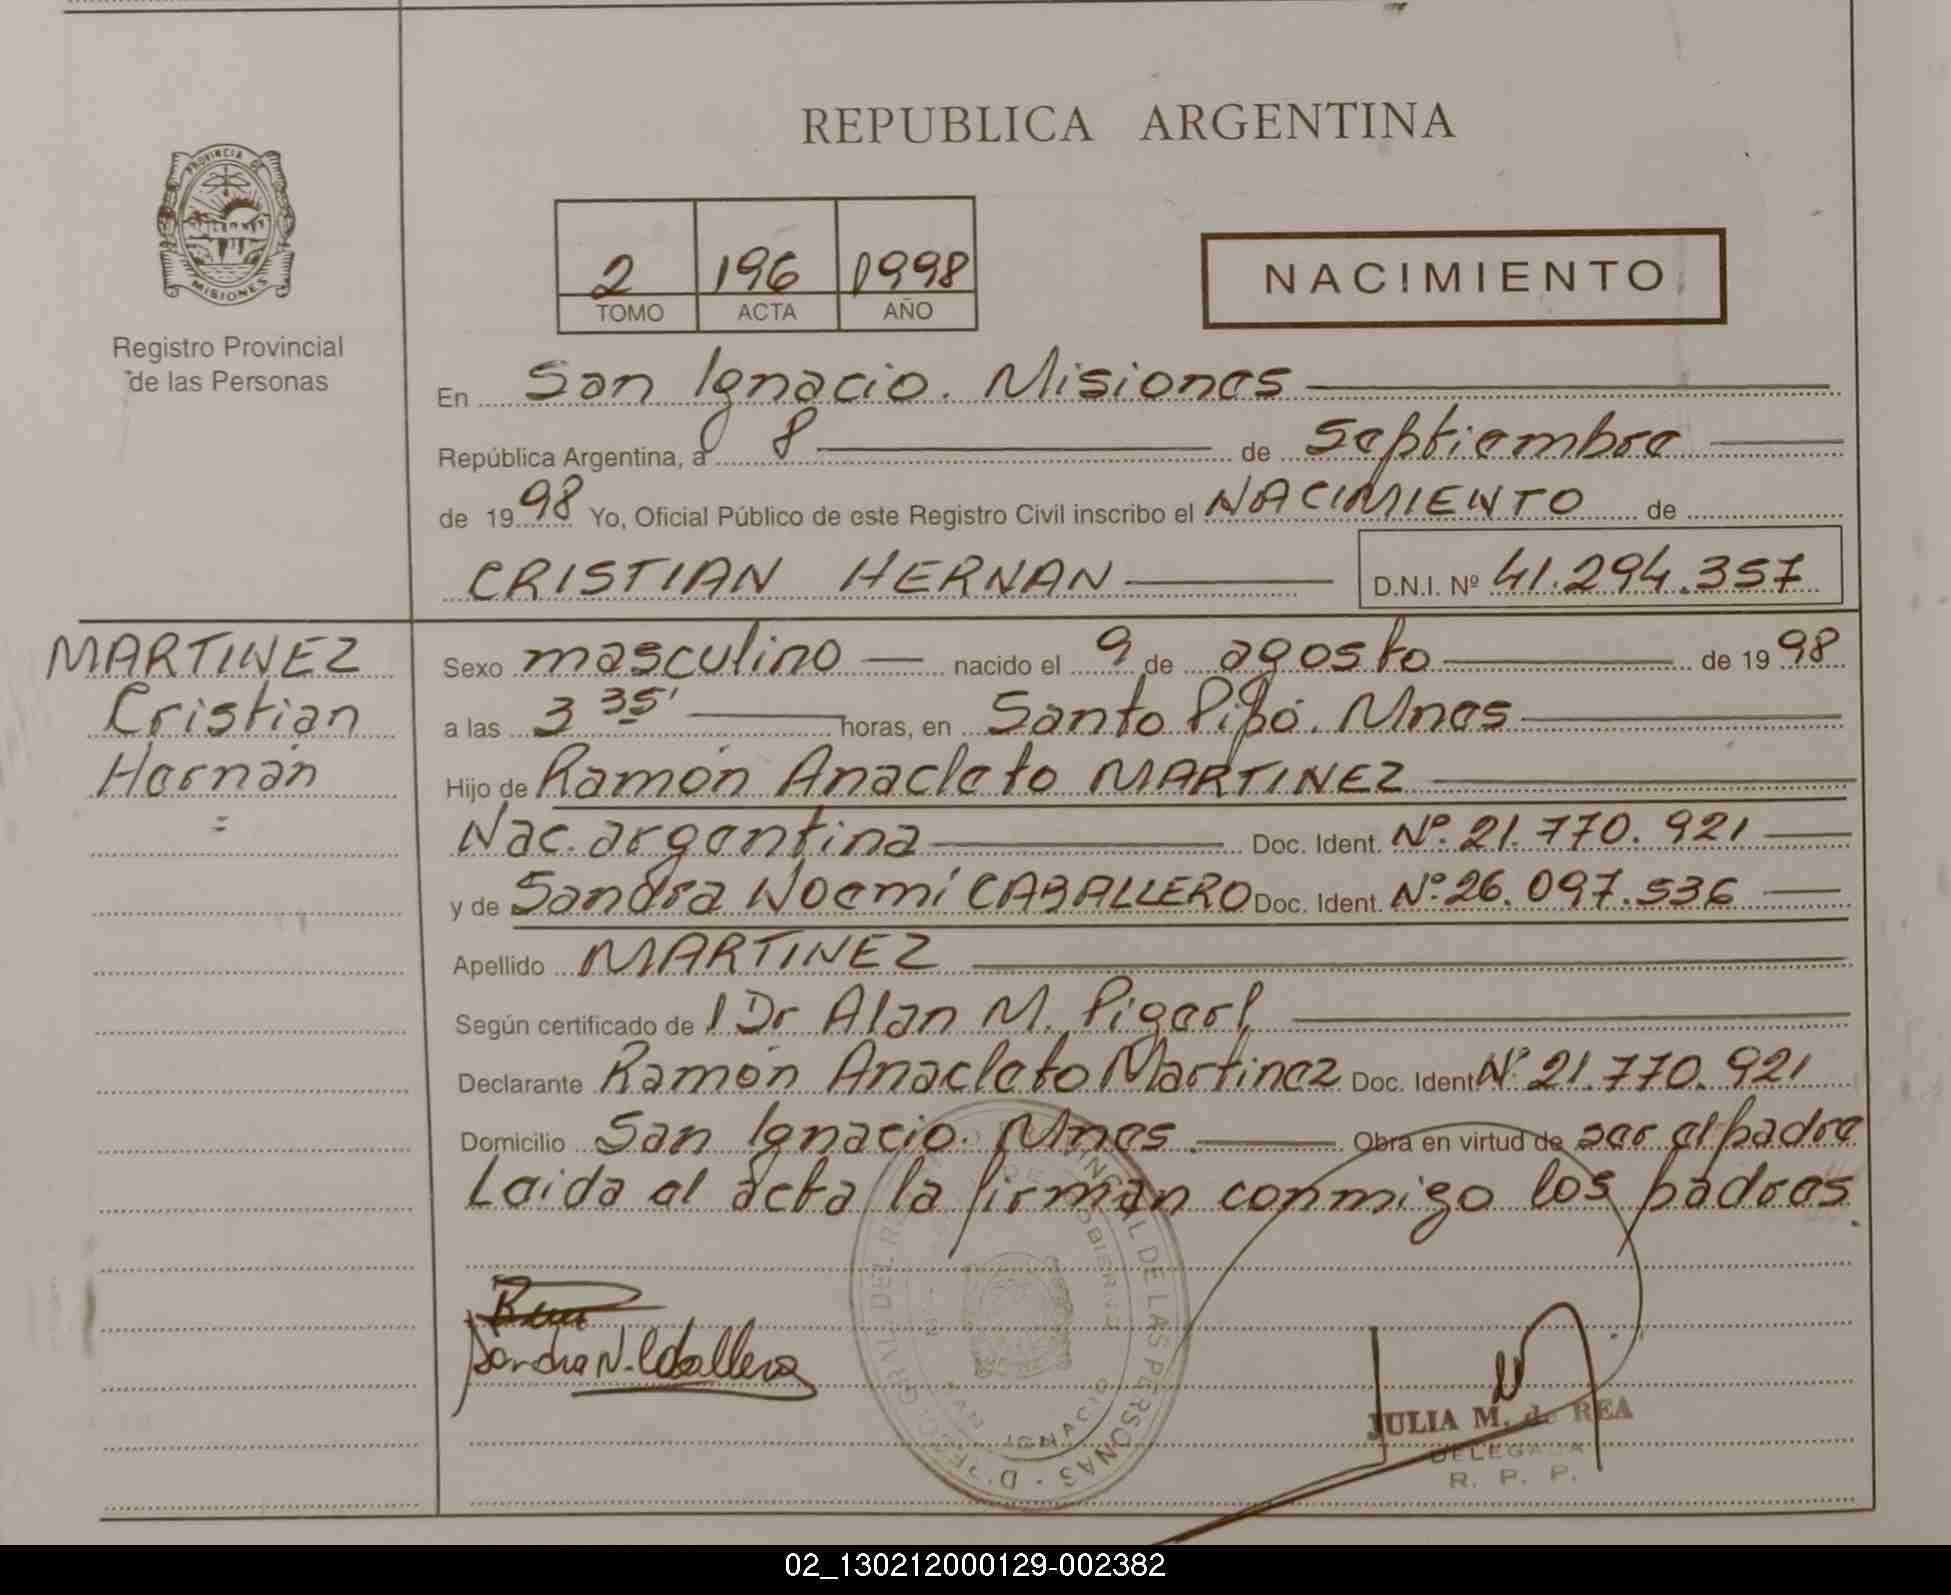 REPUBLICA ARGENTINA
PROVINCIA DE
MISIONES
Registro Provincial
de las Personas
2 196 1998
TOMO ACTA AÑO
NACIMIENTO
En San Ignacio. Misiones
República Argentina, a 8 de Septiembre
de 1998 Yo, Oficial Público de este Registro Civil inscribo el NACIMIENTO de
CRISTIAN HERNAN D.N.I. Nº 41.294.357
MARTINEZ
Cristian
Hernán
Sexo masculino nacido el 9 de agosto de 1998
a las 3 35' horas, en Santo Pipó. Mnes
Hijo de Ramón Anacleto MARTINEZ
Nac. argentina Doc. Ident. Nº. 21.770.921
y de Sandra Noemí CABALLERO Doc. Ident. Nº. 26.097.536
Apellido MARTINEZ
Según certificado de Dr Alan M.
Declarante Ramón Anacleto Martinez Doc. Ident Nº 21.770.921
Domicilio San Ignacio. Mnes. Obra en virtud de ser el padre
Leida el acta la firman conmigo los padres.
Sandra N. Caballero
JULIA M. de REA
DELEGADA
R. P. P.
02_130212000129-002382